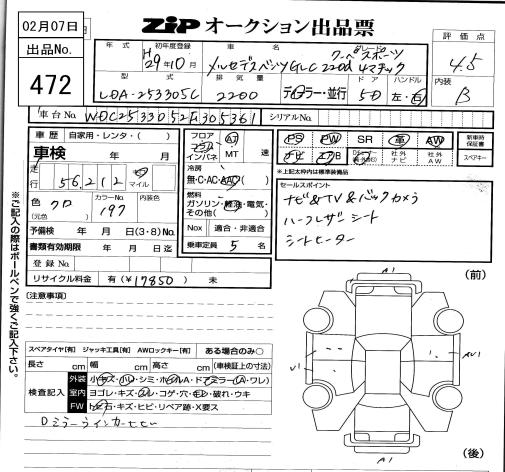 02月07日
ZIP オークション出品票
出品No.
472
年式 初年度登録 車名 グレード
H29年10月 メルセデスベンツGLC 220d 4マチック クーペスポーツ
評価点
4.5
型式 排気量 ドア ハンドル
LDA-253305C 2200 ディーラー・並行 5D 左・右
内装
B
車台No. WDC2533052F305361 シリアルNo.
車歴 自家用・レンタ・( )
車検 年 月
走行 56,212 マイル
色 クロ カラーNo. 197 内装色
(元色)
予備検 年 月 日(3・8)No.
書類有効期限 年 月 日迄
登録No.
リサイクル料金 有(¥17850) 未
フロア
コラム
インパネ
AT
MT 速
冷房
無・C・AC・AAC
燃料
ガソリン・軽油・電気・
その他( )
Nox 適合・非適合
乗車定員 5 名
PS PW SR 革 AW
ナビ エアB 社外ナビ 社外AW
新車時保証書
スペアキー
※上記太枠内は標準装備品
セールスポイント
ナビ&TV&バックカメラ
ハーフレザーシート
シートヒーター
※ご記入の際はボールペンで強くご記入下さい。
(注意事項)
スペアタイヤ[有] ジャッキ工具[有] AWロックキー[有] ある場合のみ○
長さ cm 幅 cm 高さ cm (車検証上の寸法)
検査記入
外装 小キズ・小ヘコ・シミ・ホイールA・ドアミラー(A・ワレ)
室内 ヨゴレ・キズ・スレ・コゲ・穴・モレ・破れ・ウキ
FW トビ石・キズ・ヒビ・リペア跡・X要ス
Dミラーウィンカーヒビ
(前)
A1
U1
AU1
A1
(後)